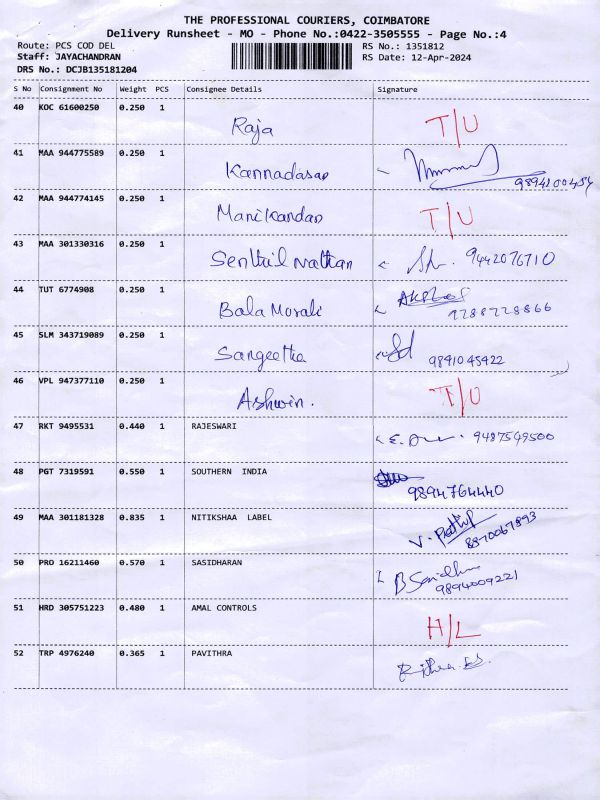 THE PROFESSIONAL COURIERS, COIMBATORE
Delivery Runsheet - MO - Phone No.:0422-3505555 - Page No.:4
Route: PCS COD DEL RS No.: 1351812
Staff: JAYACHANDRAN RS Date: 12-Apr-2024
DRS No.: DCJB135181204
S No Consignment No Weight PCS Consignee Details Signature
40 KOC 61600250 0.250 1 Raja T/U
41 MAA 944775589 0.250 1 Kannadasan 9894100454
42 MAA 944774145 0.250 1 Manikandan T/U
43 MAA 301330316 0.250 1 Senthil nathan 9442076710
44 TUT 6774908 0.250 1 Bala Morali 9788728866
45 SLM 343719089 0.250 1 Sangeetha Sd 9841045422
46 VPL 947377110 0.250 1 Ashwin. T/U
47 RKT 9495531 0.440 1 RAJESWARI 9487549500
48 PGT 7319591 0.550 1 SOUTHERN INDIA 9894764440
49 MAA 301181328 0.835 1 NITIKSHAA LABEL 8870067893
50 PRO 16211460 0.570 1 SASIDHARAN 9894009221
51 HRD 305751223 0.480 1 AMAL CONTROLS H/L
52 TRP 4976240 0.365 1 PAVITHRA